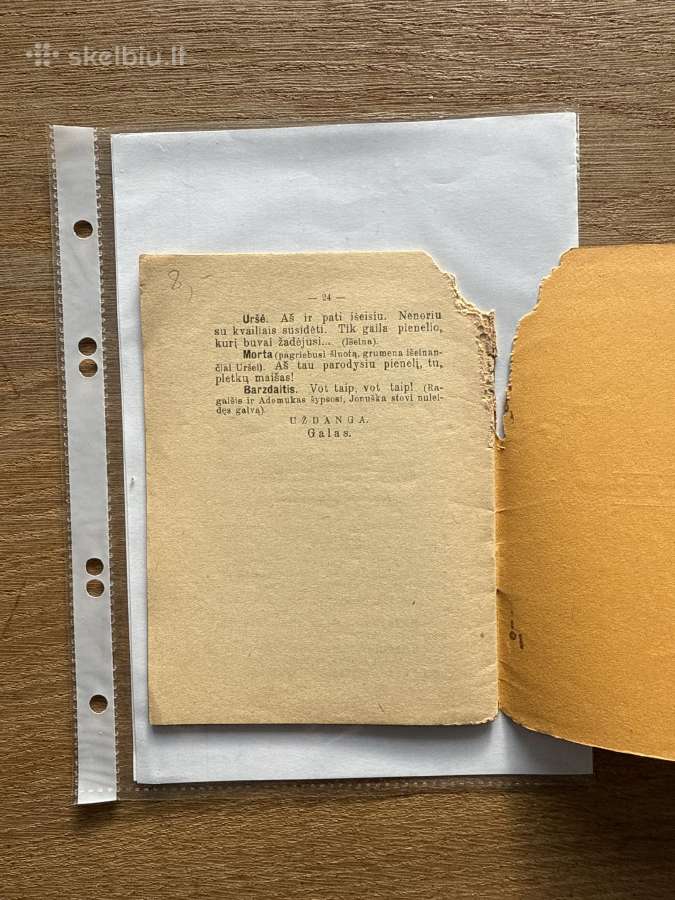 skelbiu.lt
8,-
— 24 —
Uršė. Aš ir pati išeisiu. Nenoriu
su kvailiais susidėti. Tik gaila pienelio,
kurį buvai žadėjusi... (Išeina).
Morta (pagriebusi šluotą, grumena išeinan-
čiai Uršei). Aš tau parodysiu pienelį, tu,
pletkų maišas!
Barzdaitis. Vot taip, vot taip! (Ra-
galšis ir Adomukas šypsosi, Jonuška stovi nulei-
dęs galvą).
UŽDANGA.
Galas.